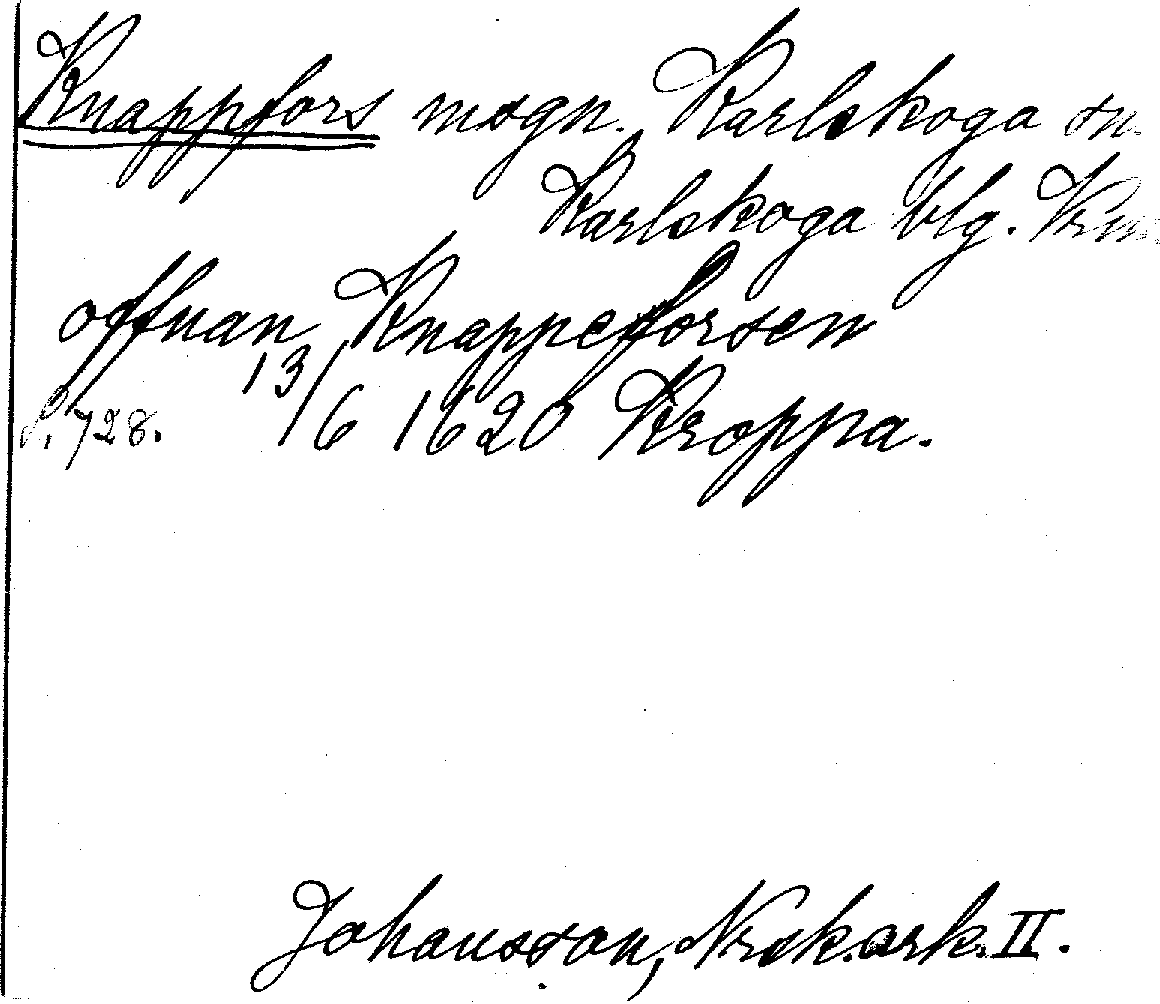 Knappfors msgn. Karlskoga sn.
Karlskoga blg. Vrm
offnan Knappefforsen
s. 728. 13/6 1620 Kroppa.
Johansson, Nrsk.ark. II.